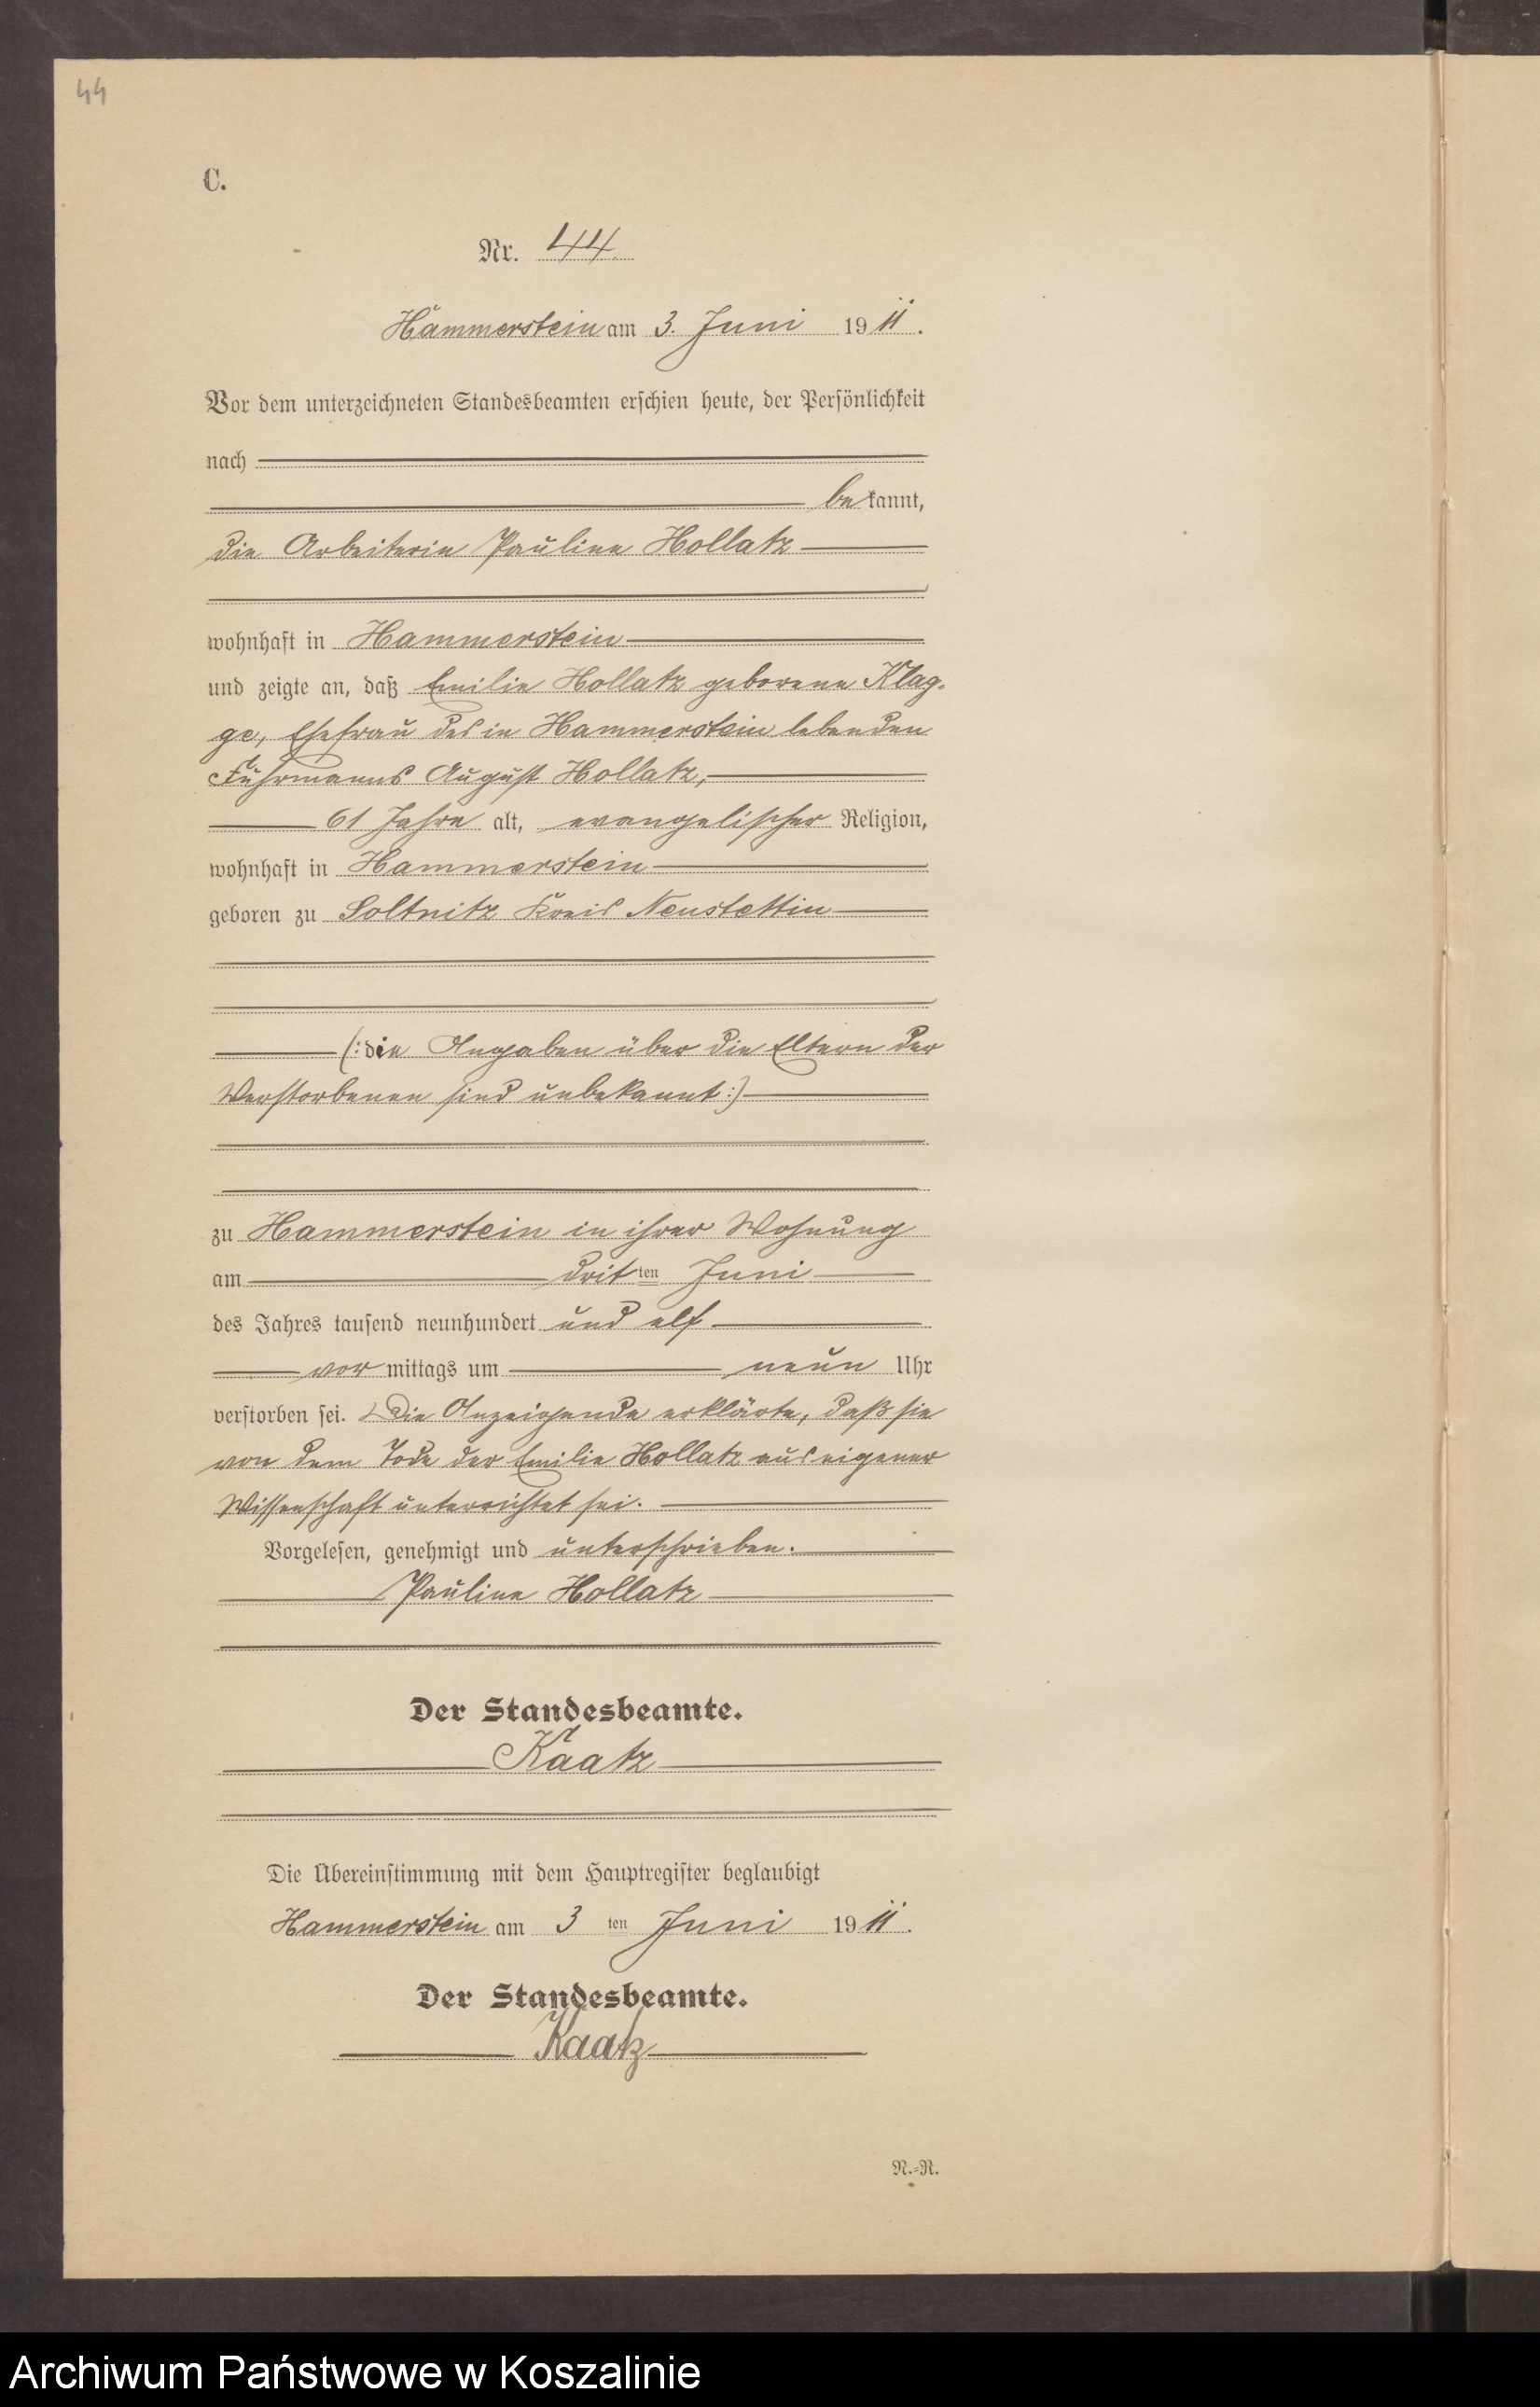 44
C.
Nr. 44.
Hammerstein am 3. Juni 1911.
Vor dem unterzeichneten Standesbeamten erschien heute, der Persönlichkeit
nach
be kannt,
die Arbeiterin Pauline Hollatz
wohnhaft in Hammerstein
und zeigte an, daß Emilie Hollatz geborene Klag-
ge, Ehefrau des in Hammerstein lebenden
Fuhrmanns August Hollatz,
61 Jahre alt, evangelischer Religion,
wohnhaft in Hammerstein
geboren zu Soltnitz Kreis Neustettin
(: die Angaben über die Eltern der
Verstorbenen sind unbekannt :)
zu Hammerstein in ihrer Wohnung
am dritten Juni
des Jahres tausend neunhundert und elf
vor mittags um neun Uhr
verstorben sei. Die Anzeigende erklärte, daß sie
von dem Tode der Emilie Hollatz aus eigener
Wissenschaft unterrichtet sei.
Vorgelesen, genehmigt und unterschrieben.
Pauline Hollatz
Der Standesbeamte.
Kaatz
Die Übereinstimmung mit dem Hauptregister beglaubigt
Hammerstein am 3 ten Juni 1911.
Der Standesbeamte.
Kaatz
N.-R.
Archiwum Państwowe w Koszalinie